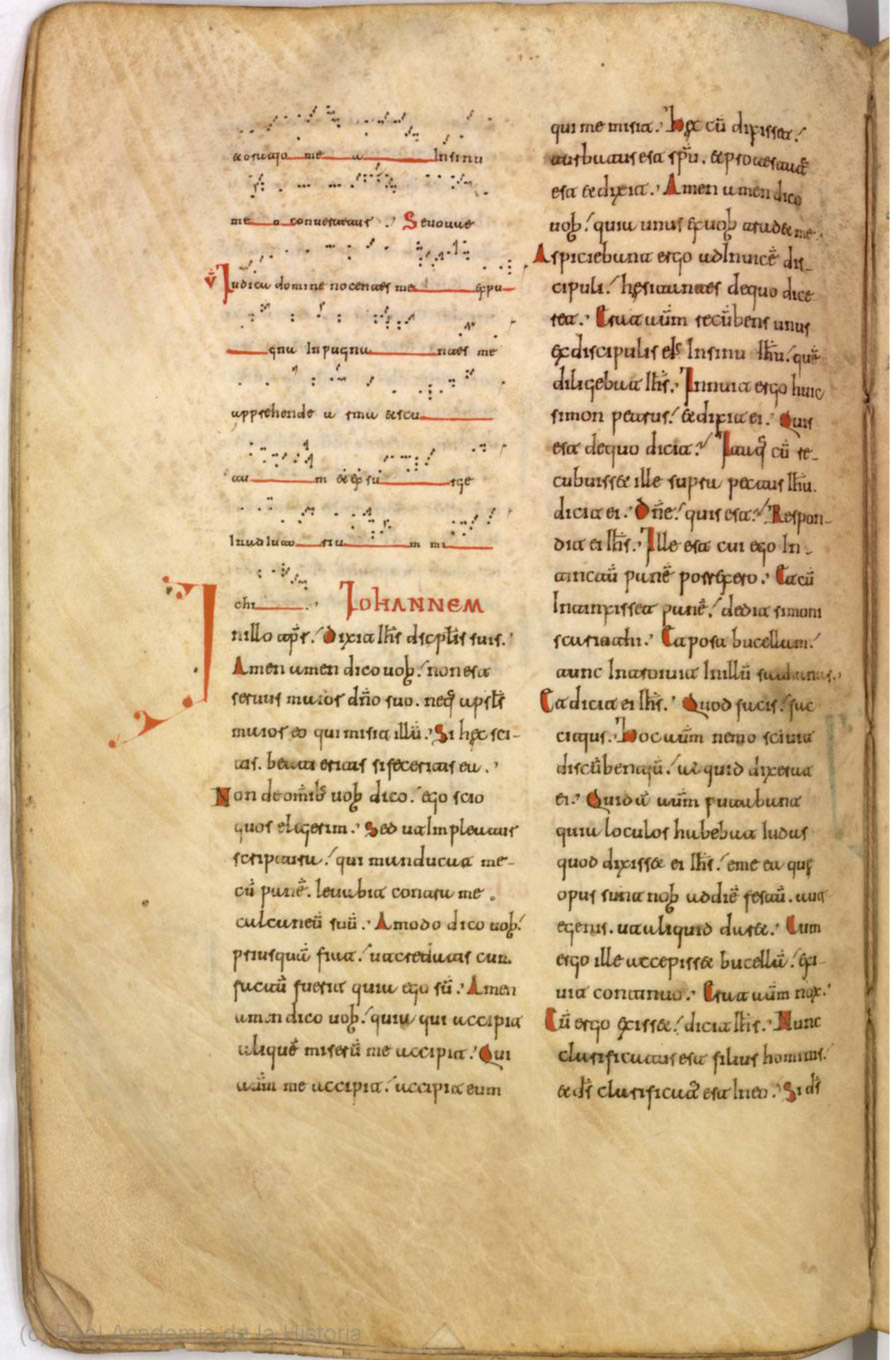 & oratio me a In sinu
me o conuertatur . Seuouae
V Iudica domine nocentes me expu
gna Inpugna ntes me
apprehende arma & scu
tu m & exsu rge
In adiuto riu m mi
chi . IOHANNEM
In illo tp̄r. Dixit Ihs̄ discplīs suis.
Amen amen dico uob. non est
seruus maior dño suo. neq apstls
maior eo qui misit illū. Si hęc sci-
tis. beati eritis si feceritis ea.
Non de omīb uob dico. ego scio
quos elegerim. Sed ut Impleatur
scriptura. qui manducat me-
cū panē. leuabit contra me
calcaneū suū. Amodo dico uob.
priusquā fiat. ut credatis cum
factū fuerit quia ego sū. Amen
amen dico uob. quia qui accipit
aliquē miserū me accipit. Qui
autm me accipit. accipit eum
qui me misit. Hęc cū dixisset.
turbatus est spū. & protestatꝰ
est & dixit. Amen amen dico
uob. quia unus ex uob tradet me.
Aspiciebant ergo ad Inuicē dis-
cipuli. hęsitantes de quo dice
ret. Erat autm recūbens unus
ex discipulis eiꝰ In sinu Ihū. quē
diligebat Ihs̄. Innuit ergo huic
simon petrus. & dixit ei. Quis
est de quo dicit. Itaq cū re-
cubuisset ille supra pectus Ihū.
dicit ei. Dñe. quis est. Respon-
dit ei Ihs̄. Ille est cui ego In-
tinctū panē porrexero. Et cū
Intinxisset panē. dedit simoni
scariothi. Et post bucellam.
tunc Introiuit In illū satanas.
Et dicit ei Ihs̄. Quod facis. fac
citius. Hoc autm nemo sciuit
discūbentiū. ad quid dixerit
ei. Quidā autm putabant
quia loculos habebat Iudas
quod dixisset ei Ihs̄. eme ea quę
opus sunt nob ad diē festū. aut
egenis. ut aliquid daret. Cum
ergo ille accepisset bucellā. exi
uit continuo. Erat autm nox.
Cū ergo exisset. dicit Ihs̄. Nunc
clarificatus est filius hominis.
& ds̄ clarificatꝰ est In eo. Si ds̄